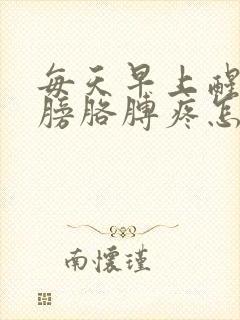 每天早上醒
膀胳膊疼怎
南怀瑾